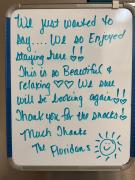 We just wanted to
say.... We so Enjoyed
staying here !!
This is so Beautiful &
relaxing ♡♡ We sure
will be booking again!!
Thank you for the snacks!
Much Thanks
The Floridans